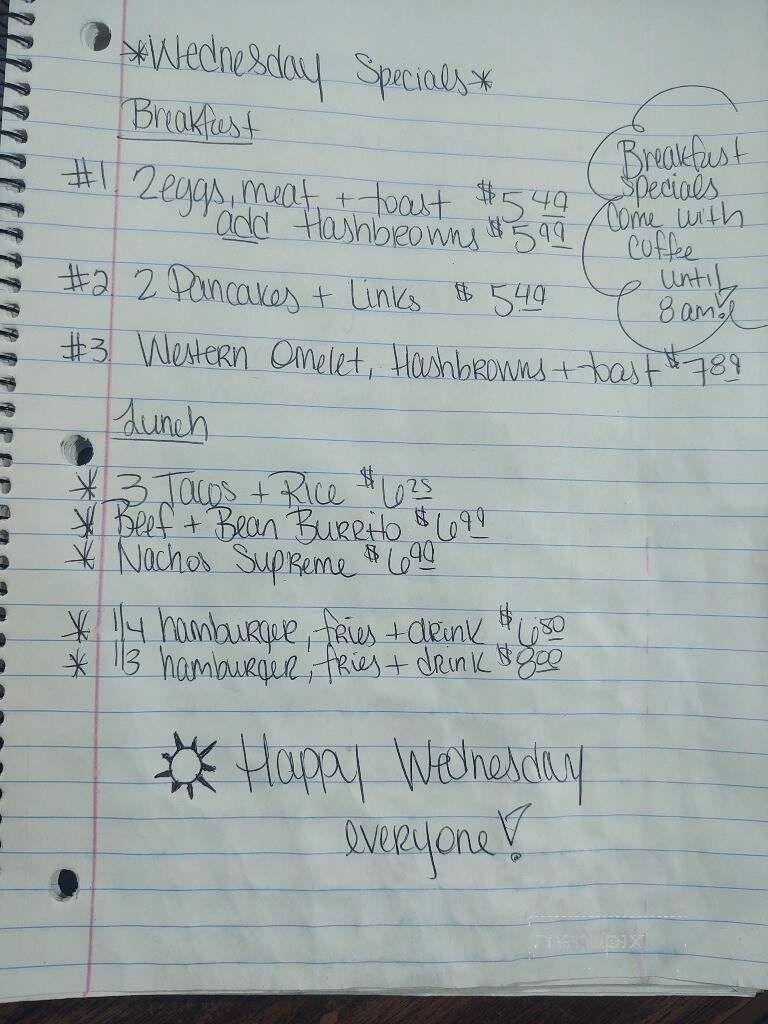 *Wednesday Specials*
Breakfast
#1. 2 eggs, meat + toast $5.49
add Hashbrowns $5.99
#2. 2 Pancakes + Links $5.49
#3. Western Omelet, Hashbrowns + toast $7.89
Breakfast
specials
come with
coffee
until
8am!
Lunch
* 3 Tacos + Rice $6.25
* Beef + Bean Burrito $6.99
* Nachos Supreme $6.99
* 1/4 hamburger, fries + drink $6.80
* 1/3 hamburger, fries + drink $8.00
Happy Wednesday
everyone!